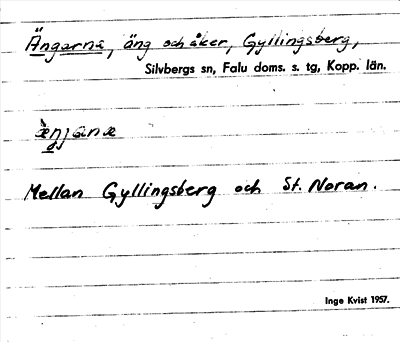 Ängarna, äng och åker, Gyllingsberg,
Silvbergs sn, Falu doms. s. tg, Kopp. län.
Mellan Gyllingsberg och St. Noran.
Inge Kvist 1957.